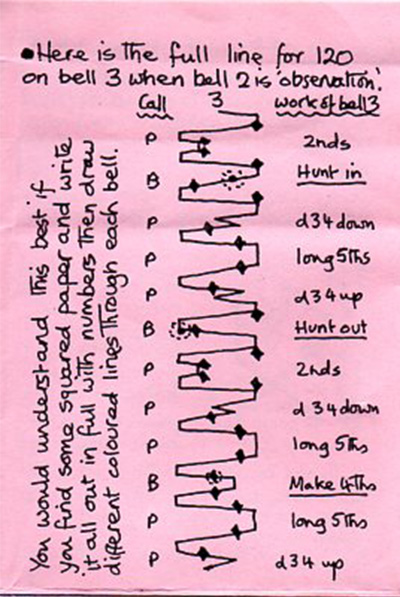 •Here is the full line for 120
on bell 3 when bell 2 is 'observation'.
Call 3 work of bell 3
P 2nds
B Hunt in
P d34 down
P long 5ths
P d34 up
B Hunt out
P 2nds
P d34 down
P long 5ths
B Make 4ths
P long 5ths
P d34 up
You would understand this best if
you find some squared paper and write
it all out in full with numbers then draw
different coloured lines through each bell.